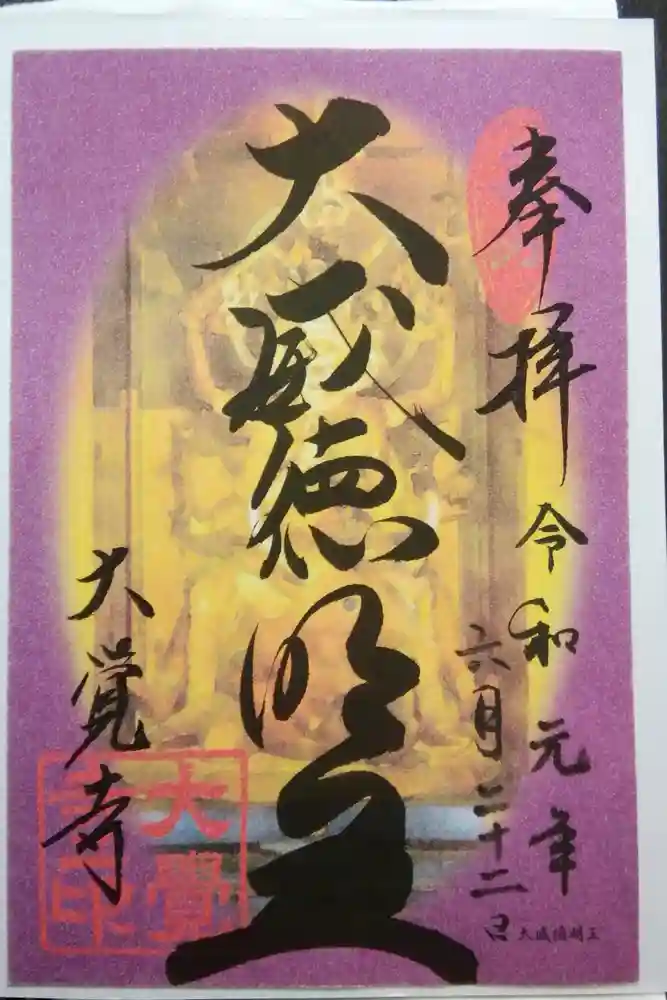 奉拝
令和元年
六月二十二日
大威徳明王
大威徳明王
大覚寺
大覺
寺印